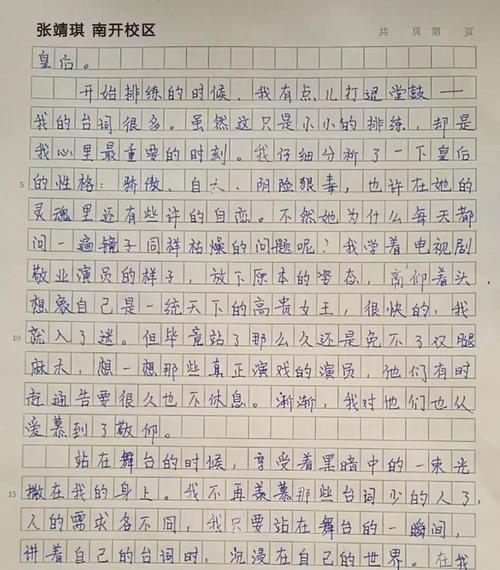 张靖琪 南开校区
共 页 第 页
皇后。
开始排练的时候,我有点儿打退堂鼓——
我的台词很多。虽然这只是小小的排练,却是
我心里最重要的时刻。我仔细分析了一下皇后
5 的性格:骄傲、自大、阴险狠毒,也许在她的
灵魂里还有些许的自恋。不然她为什么每天都
问一遍镜子同样枯燥的问题呢?我学着电视剧
敬业演员的样子,放下原本的姿态,高仰着头,
想象自己是一统天下的高贵女王,很快的,我
10 就入了迷。但毕竟站了那么久还是免不了双腿
麻木,想一想那些真正演戏的演员,他们有时
赶通告要很久也不休息。渐渐,我对他们也从
爱慕到了敬仰。
站在舞台的时候,享受着黑暗中的一束光
15 撒在我的身上。我不再羡慕那些台词少的人了,
人的需求各不同,我只要站在舞台的一瞬间,
讲着自己的台词时,沉浸在自己的世界。在我